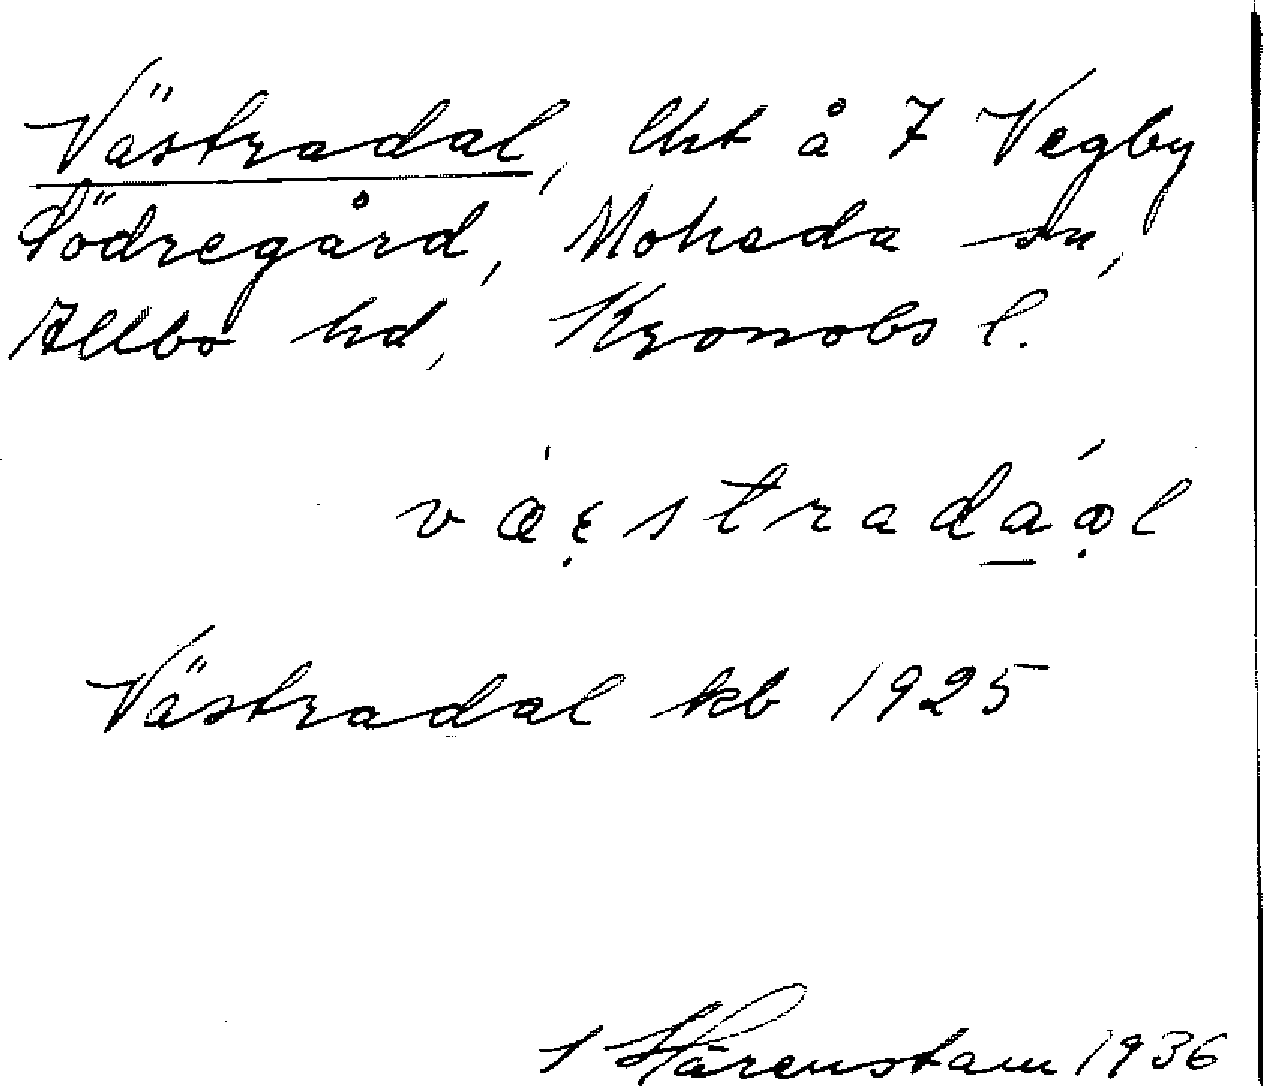 Västradal, lht å 7 Vegby
Södregård, Moheda sn,
Allbo hd, Kronobs l.
Västradal kb 1925
1936